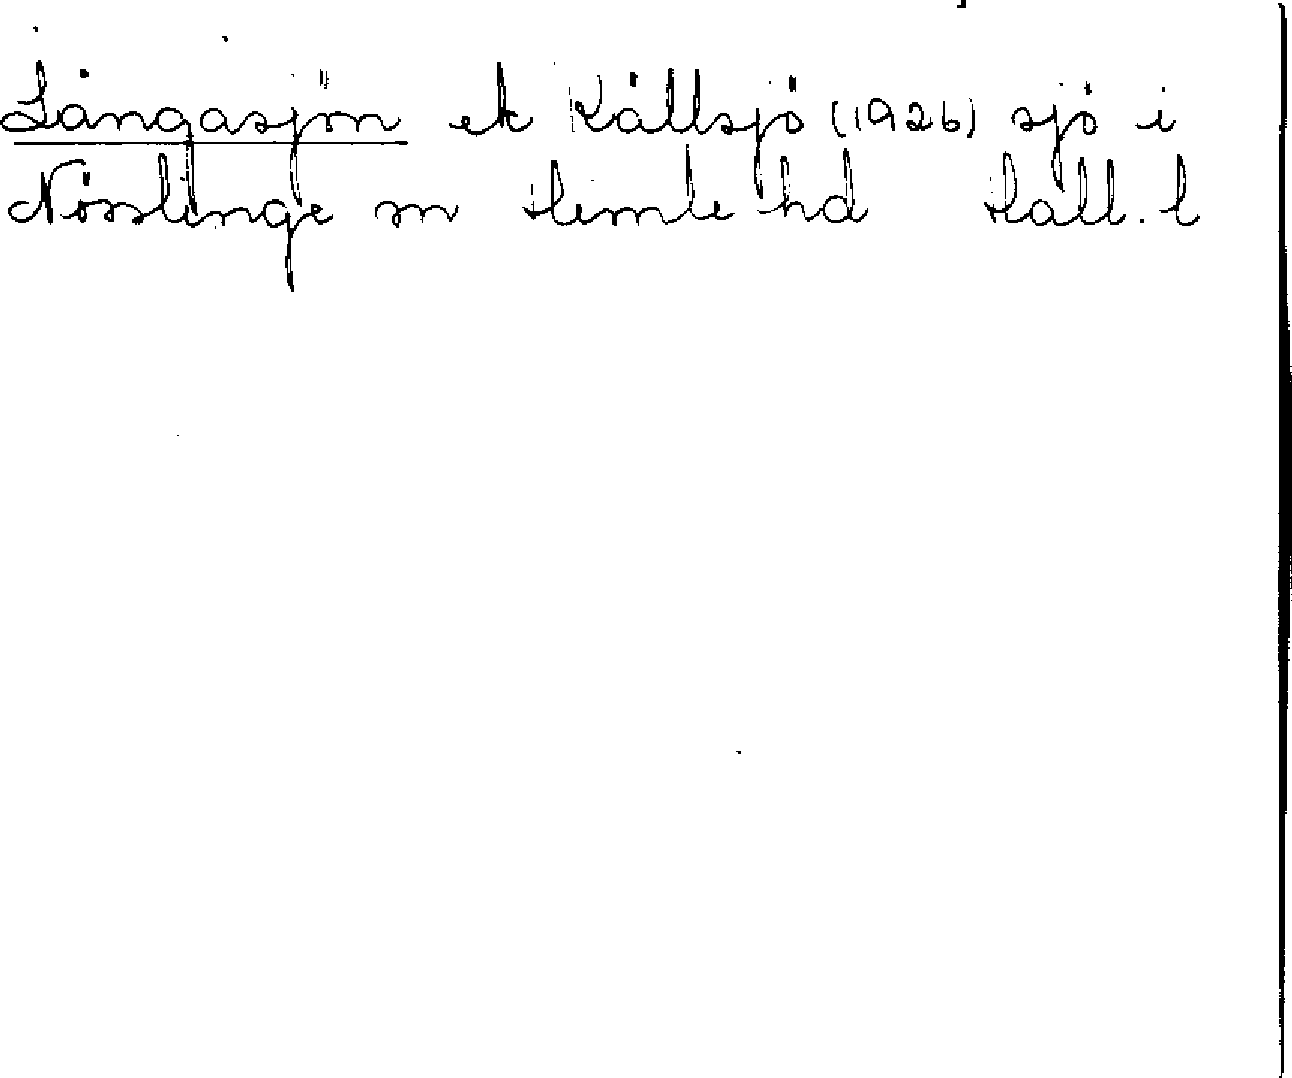 Långasjön ek Källsjö (1926) sjö i
Nösslinge sn Himle hd Hall. l